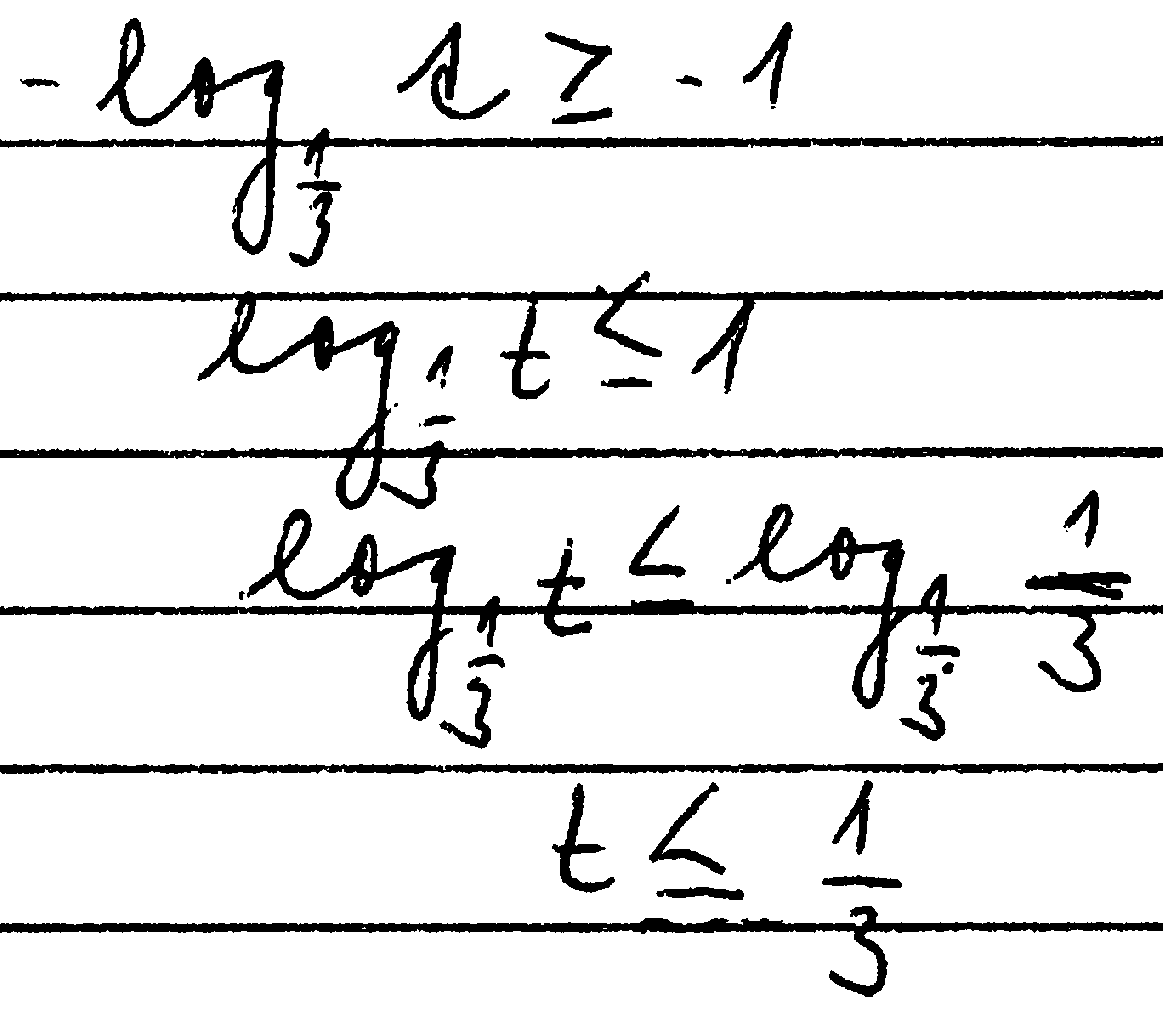 -log_{1/3} t ≥ -1
log_{1/3} t ≤ 1
log_{1/3} t ≤ log_{1/3} 1/3
t ≤ 1/3